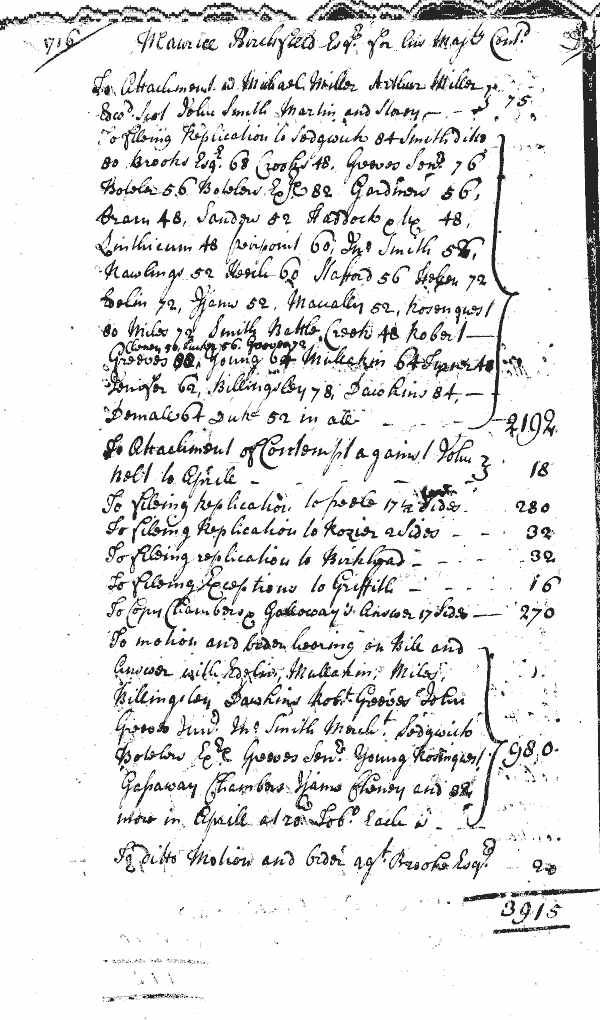 1716 Maurice Birchfield Esqr. for his Majts Cont.
To Attachment vs Michael Miller Arthur Miller
Scot John Smith Martin and Storey, - - 75
To fileing Replication to Sedgwick 84 Smith ditto
80 Brooks Esqr. 68 Crooks 48, Greeves Senr. 76
Boteler 56 Botelers Ex. 82 Gardiners 56,
48, Sanders 52 Haddock 48,
Linthicum 48 pierpoint 60, Jno. Smith 56,
Rawlings 52 60 Stafford 56 72
72, Ijams 52, Macually 52, Rosenquest
80 Miles 72 Smith Battle Creek 48 Robert
Cheney 56, 56,
Greeves 88, Young 64 Mullakin 64 Turner 48
62, Billingsley 78, Dawkins 84, -
64 52 in all - - - 2192
To Attachment of Contempt against John
to Aprile - - - - 18
To fileing Replication to peele 17½ Sides - 280
To fileing Replication to Rozier 2 Sides - - 32
To fileing replication to Birkhead - - - 32
To fileing Exceptions to Griffith - - - 16
To Copy Chambers Galloway's Answer 17 Sides - 270
To motion and order hearing on Bill and
Answer with Mullakin, Miles,
Billingsley Dawkins Robt. Greeves John
Greeves Junr. Jno. Smith Mercht. Sedgwick
Botelers Ex. Greeves Senr. Young Rosinquest 980
Gassaway Chambers Ijams Cheney and 32
more in Aprill at 20 Tobo. Each is - -
To ditto Motion and order agt. Brooke Esqr. 20
3915